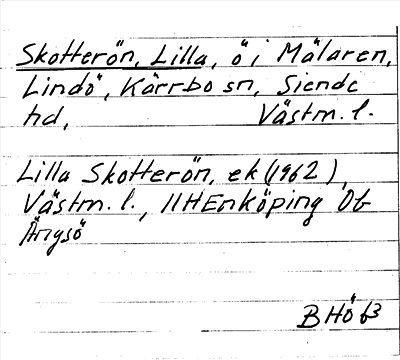 Skotterön, Lilla, ö i Mälaren,
Lindö, Kärrbo sn, Siende
hd, Västm. l.
Lilla Skotterön, ek (1962),
Västm. l., 11H Enköping 0b
Ängsö
B Hö 63